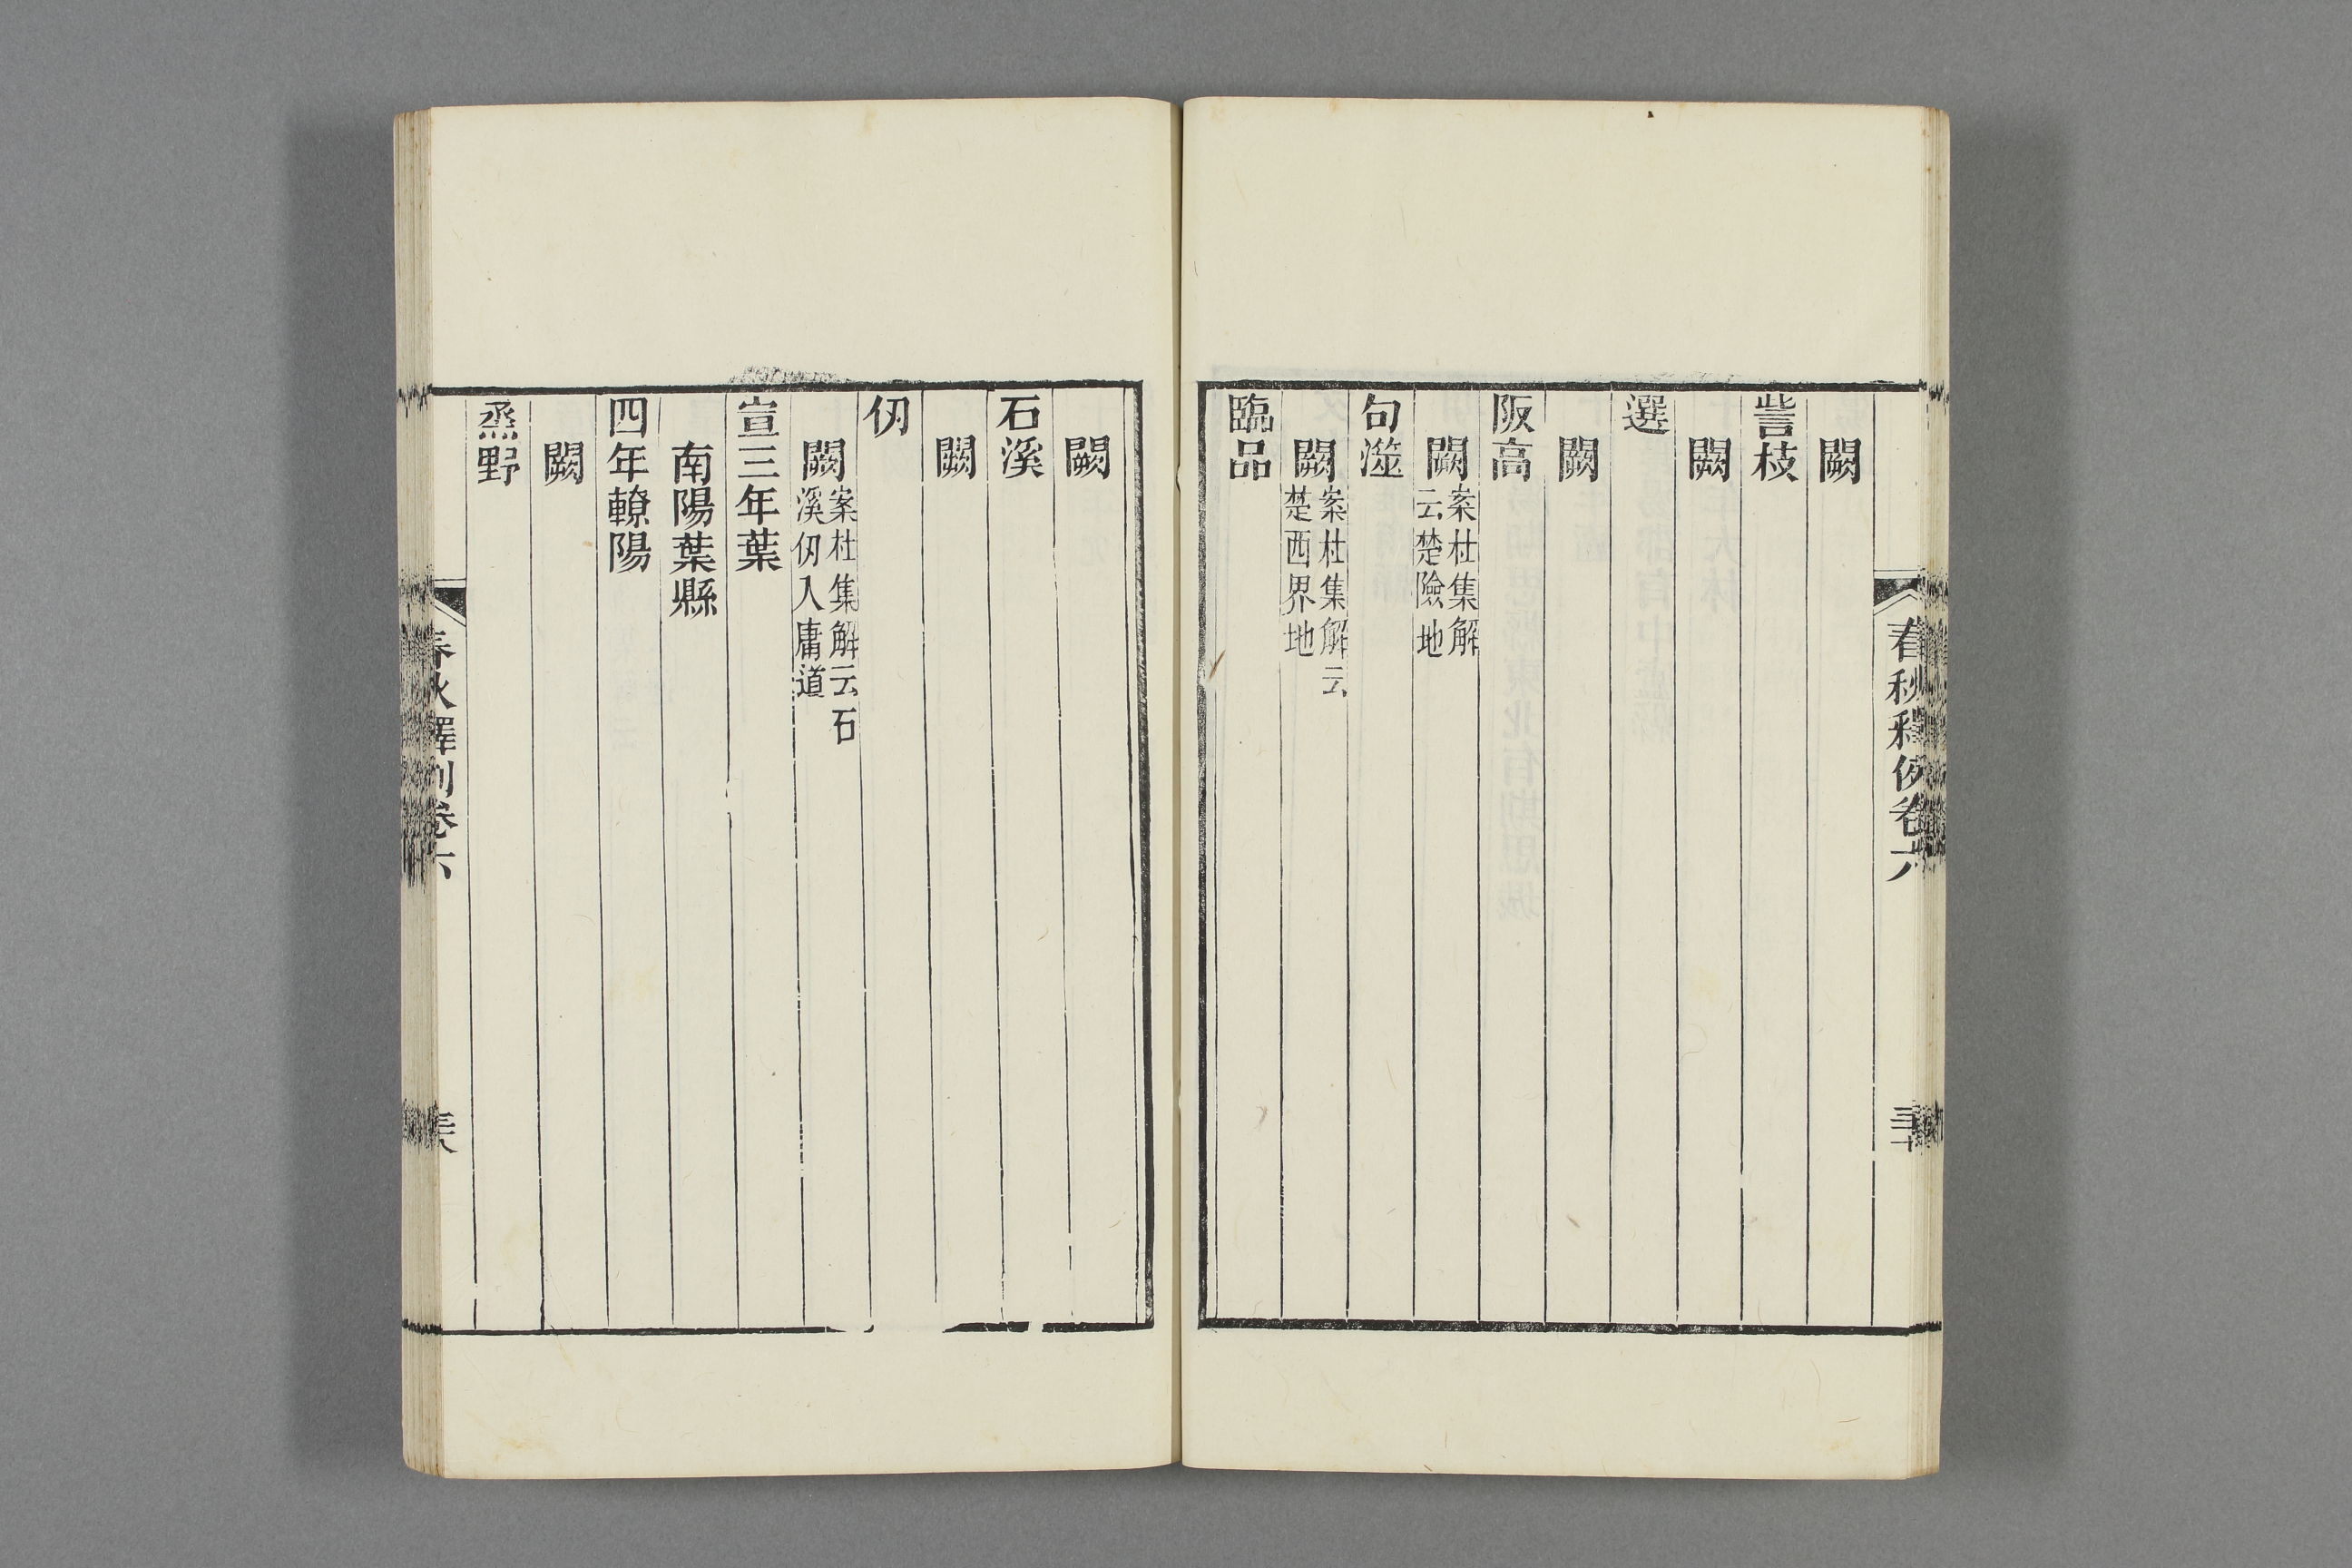 春秋釋例卷六
闕
訾枝
闕
選
闕
阪高
闕案杜集解
云楚險地
句澨
闕案杜集解云
楚西界地
臨品
闕
石溪
闕
仞
闕案杜集解云石
溪仞入庸道
宣三年葉
南陽葉縣
四年轑陽
闕
烝野
春秋釋例卷六